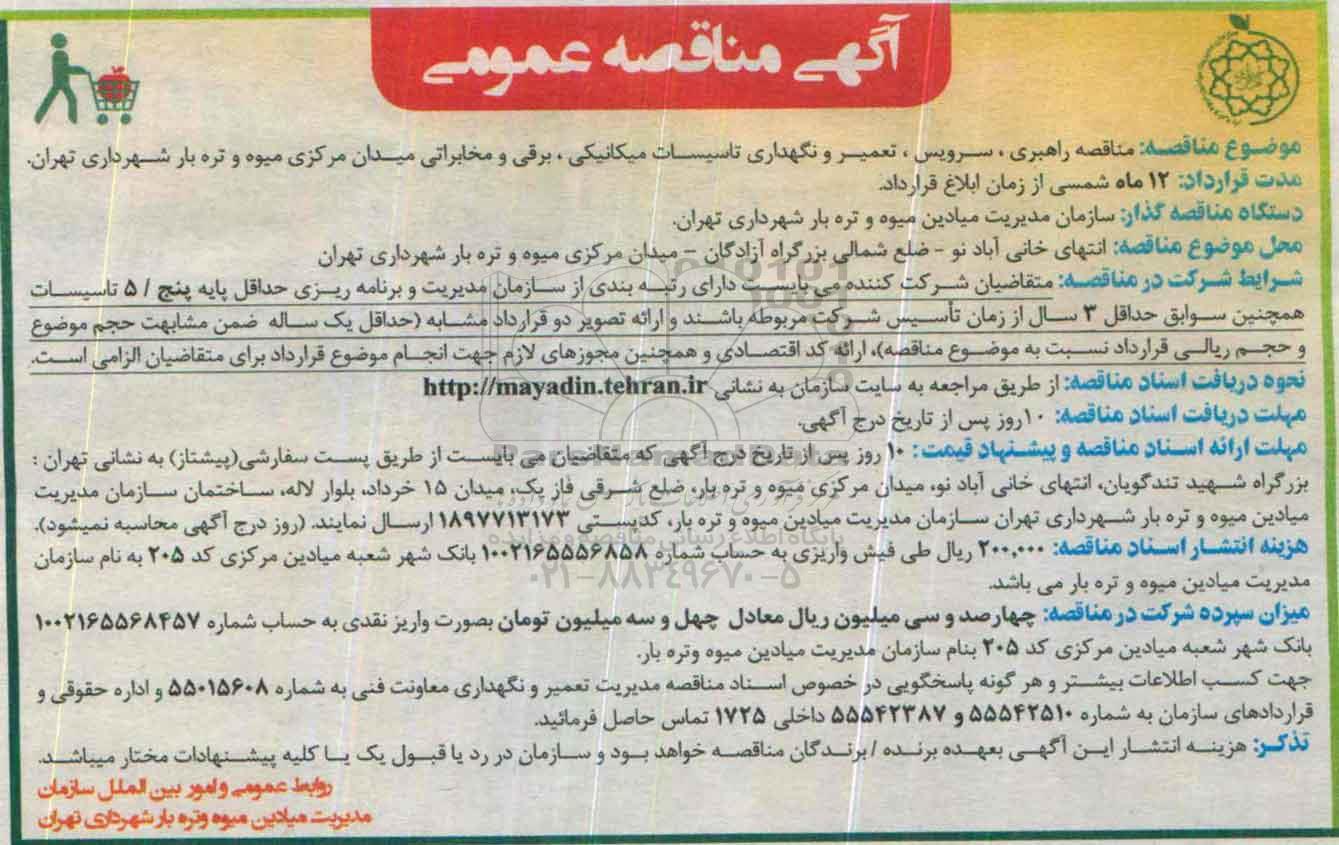 آگهی مناقصه عمومی
موضوع مناقصه: مناقصه راهبری ، سرویس ، تعمیر و نگهداری تاسیسات میکانیکی ، برقی و مخابراتی میدان مرکزی میوه و تره بار شهرداری تهران.
مدت قرارداد: ۱۲ ماه شمسی از زمان ابلاغ قرارداد.
دستگاه مناقصه گذار: سازمان مدیریت میادین میوه و تره بار شهرداری تهران.
محل موضوع مناقصه: انتهای خانی آباد نو - ضلع شمالی بزرگراه آزادگان – میدان مرکزی میوه و تره بار شهرداری تهران
شرایط شرکت در مناقصه: متقاضیان شرکت کننده می بایست دارای رتبه بندی از سازمان مدیریت و برنامه ریزی حداقل پایه پنج / ۵ تاسیسات
همچنین سوابق حداقل ۳ سال از زمان تأسیس شرکت مربوطه باشند و ارائه تصویر دو قرارداد مشابه (حداقل یک ساله ضمن مشابهت حجم موضوع
و حجم ریالی قرارداد نسبت به موضوع مناقصه)، ارائه کد اقتصادی و همچنین مجوزهای لازم جهت انجام موضوع قرارداد برای متقاضیان الزامی است.
نحوه دریافت اسناد مناقصه: از طریق مراجعه به سایت سازمان به نشانی http://mayadin.tehran.ir
مهلت دریافت اسناد مناقصه: ۱۰روز پس از تاریخ درج آگهی.
مهلت ارائه اسناد مناقصه و پیشنهاد قیمت: ۱۰ روز پس از تاریخ درج آگهی که متقاضیان می بایست از طریق پست سفارشی(پیشتاز) به نشانی تهران :
بزرگراه شهید تندگویان، انتهای خانی آباد نو، میدان مرکزی میوه و تره بار، ضلع شرقی فاز یک، میدان ۱۵ خرداد، بلوار لاله، ساختمان سازمان مدیریت
میادین میوه و تره بار شهرداری تهران سازمان مدیریت میادین میوه و تره بار، کدپستی ۱۸۹۷۷۱۳۱۷۳ ارسال نمایند. (روز درج آگهی محاسبه نمیشود).
هزینه انتشار اسناد مناقصه: ۲۰۰,۰۰۰ ریال طی فیش واریزی به حساب شماره ۱۰۰۲۱۶۵۵۵۶۸۵۸ بانک شهر شعبه میادین مرکزی کد ۲۰۵ به نام سازمان
مدیریت میادین میوه و تره بار می باشد.
میزان سپرده شرکت در مناقصه: چهارصد و سی میلیون ریال معادل چهل و سه میلیون تومان بصورت واریز نقدی به حساب شماره ۱۰۰۲۱۶۵۵۶۸۴۵۷
بانک شهر شعبه میادین مرکزی کد ۲۰۵ بنام سازمان مدیریت میادین میوه وتره بار.
جهت کسب اطلاعات بیشتر و هر گونه پاسخگویی در خصوص اسناد مناقصه مدیریت تعمیر و نگهداری معاونت فنی به شماره ۵۵۰۱۵۶۰۸ و اداره حقوقی و
قراردادهای سازمان به شماره ۵۵۵۴۲۵۱۰ و ۵۵۵۴۲۳۸۷ داخلی ۱۷۲۵ تماس حاصل فرمائید.
تذکر: هزینه انتشار این آگهی بعهده برنده / برندگان مناقصه خواهد بود و سازمان در رد یا قبول یک یا کلیه پیشنهادات مختار میباشد.
روابط عمومی و امور بین الملل سازمان
مدیریت میادین میوه وتره بار شهرداری تهران
پایگاه اطلاع رسانی مناقصه و مزایده
۰۲۱-۸۸۳۴۹۶۷۰-۵